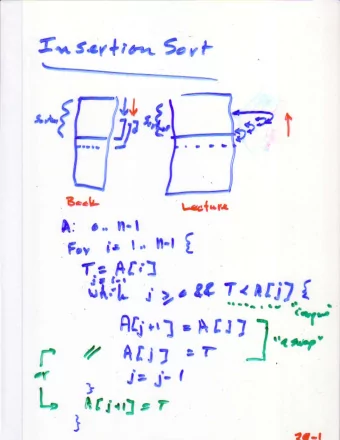 Insertion Sort
Sorted
Book
Lecture
A: 0.. n-1
For i= 1.. n-1 {
T= A[i]
j= i-1
while j ≥ 0 && T < A[j] {
"compare"
A[j+1] = A[j]
"a swap"
// A[j] = T
or
j= j-1
}
A[j+1] = T
}
28-1